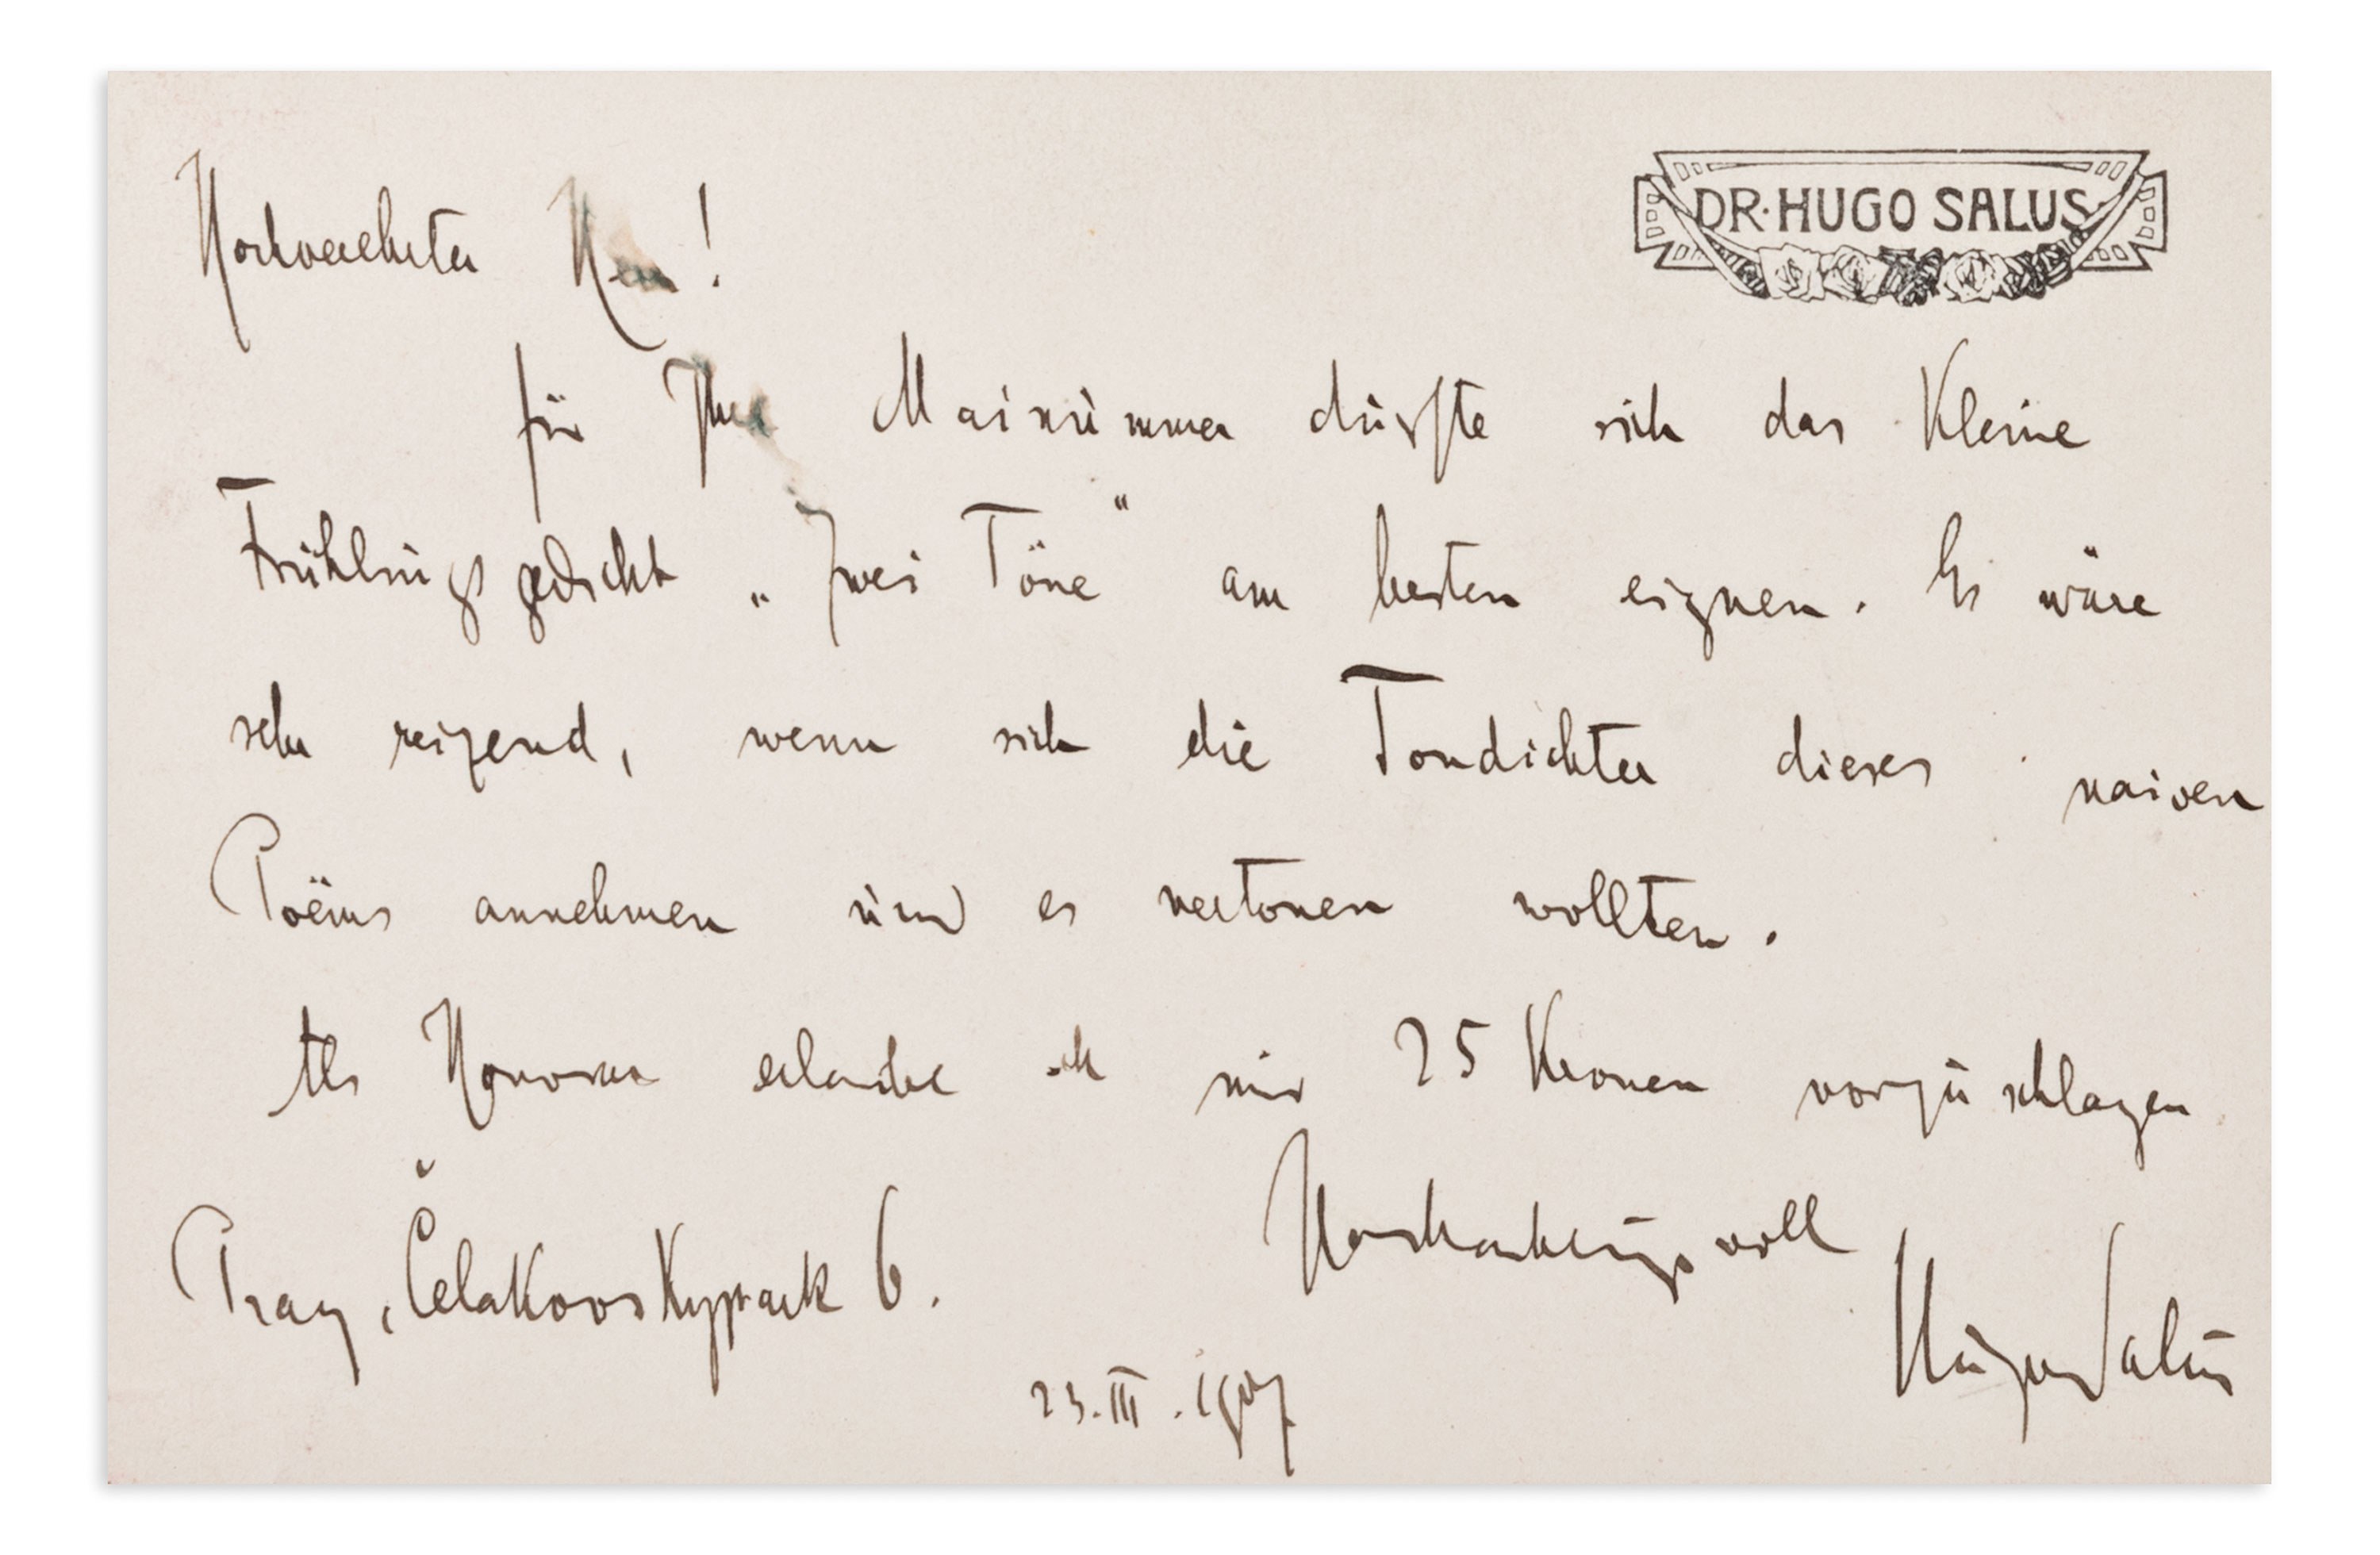 DR·HUGO SALUS
Hochverehrter Herr!
für Ihre Mainummer dürfte sich das kleine
Frühlingsgedicht „Zwei Töne" am besten eignen. Es wäre
sehr reizend, wenn sich die Tondichter dieses naiven
Poëms annehmen und es vertonen wollten.
Als Honorar erlaube ich mir 25 Kronen vorzuschlagen
Hochachtungsvoll
Prag, Čelakovskypark 6.
Hugo Salus
23.III.1907